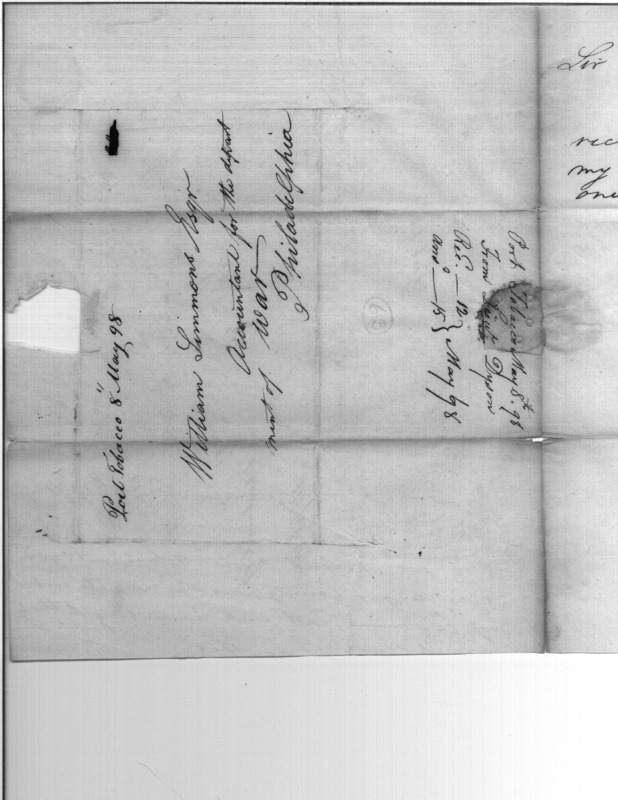 Port Tobacco 8" May 98
William Simmons Esqr.
Accountant for the depart
ment of War
Philadelphia
63
Port Tobacco May 8th 98
From Dyson
Recd. 12
ansd. 15 } May 98
Sir
rec
my
one